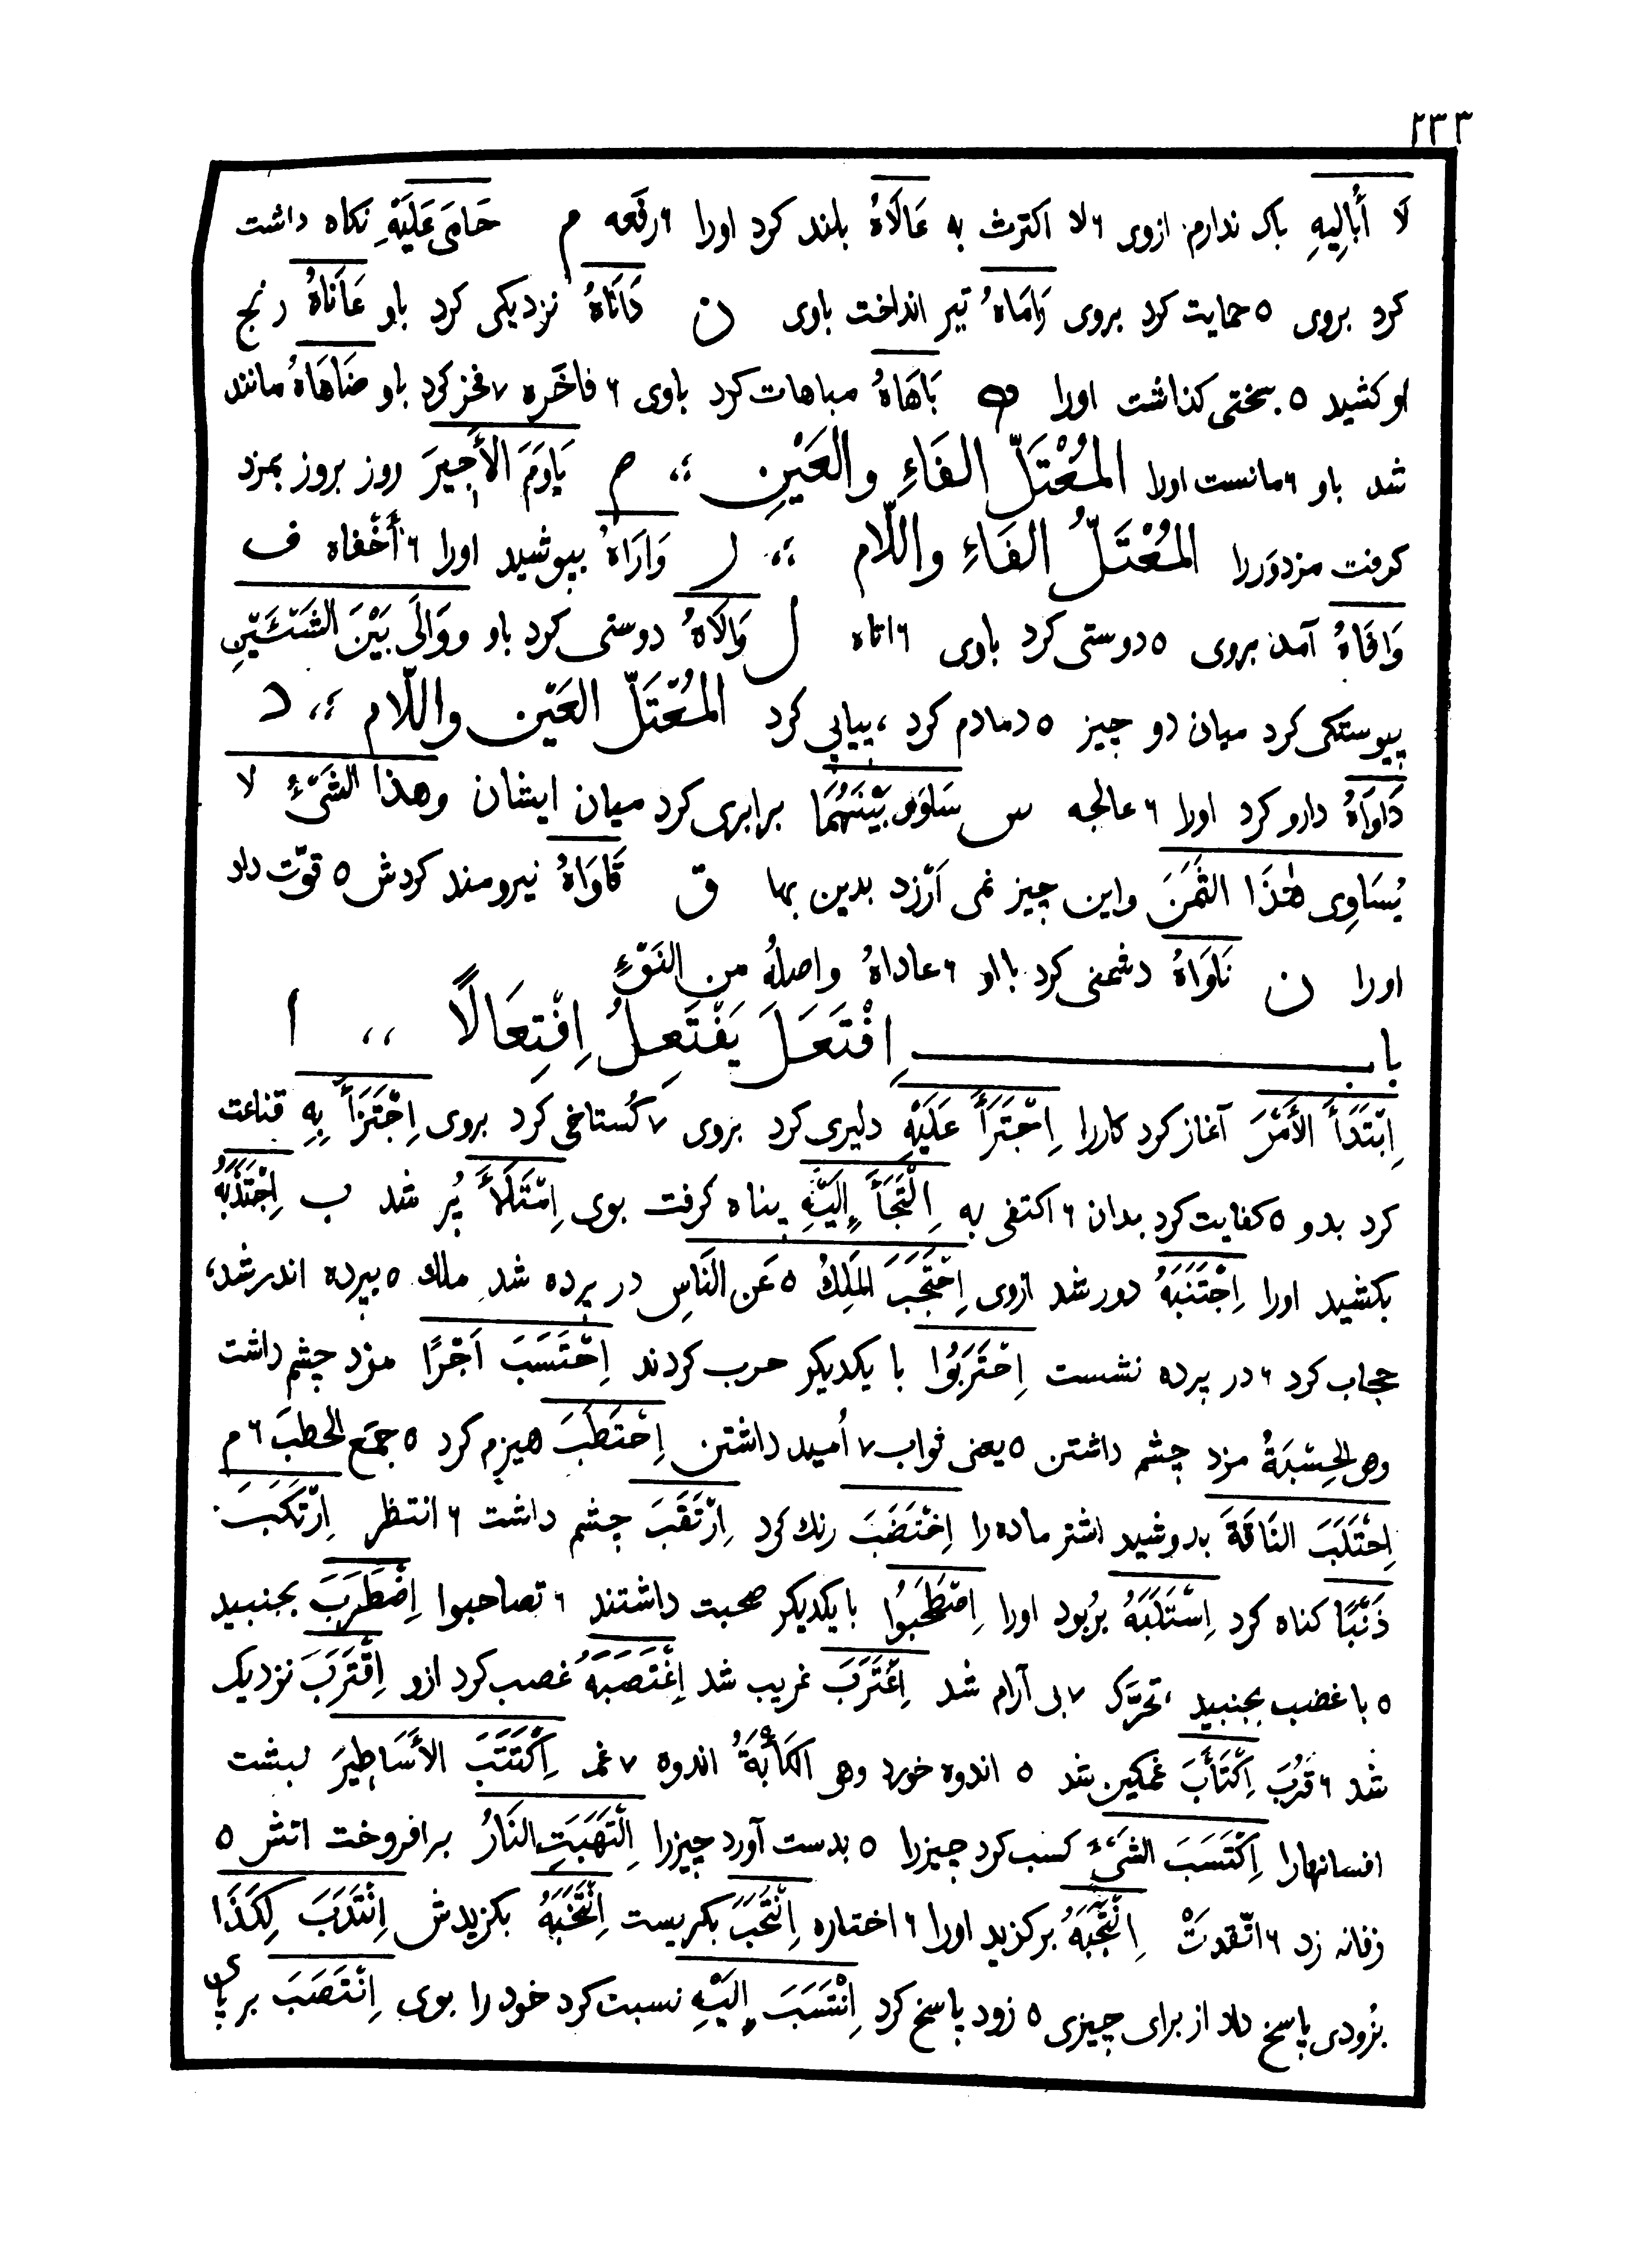 ٢٣٣
لَا أُبَالِيهِ باک ندارم ازوی ٦ لا اکترث به عَالَاهُ بلند کرد اورا ٦ رفَعه م حَامَی عَلَيْهِ نکاه داشت
کرد بروی ٥ حمایت کرد بروی رَامَاهُ تیر انداخت باوی ن دَانَاهُ نزدیکی کرد باو عَانَاهُ رنج
او کشید ٥ بسختی کذاشت اورا ه بَاهَاهُ مباهات کرد باوی ٦ فاخَره ٧ فخز کرد باو ضَاهَاهُ مانند
شد باو ٦ مانست اورا المُعْتَلّ الفَاءِ والعَيْنِ ،، م يَاوَمَ الأَجِيرَ روز بروز بمزد
کرفت مزدوَررا المُعْتَلُّ الفَاءِ واللّام ،، ر وَارَاهُ بپوشید اورا ٦ أَخْفاه ف
وَافَاهُ آمدن بروی ٥ دوستی کرد باوی ٦ اتاه ل وَالَاهُ دوستی کرد باو ووَالَی بَيْنَ الشَيْئَيْنِ
پیوستکی کرد میان دو چیز ٥ دمادم کرد ، پیاپی کرد المُعْتَلّ العَيْن واللّام ،، د
دَاوَاهُ دارو کرد اورا ٦ عالجه س سَاوَی بَيْنَهُمَا برابری کرد میان ایشان وهذا الشَیْءِ لا
يُسَاوِی هٰذَا الثَمَنَ واین چیز نمی اَرْزد بدین بها ق قَاوَاهُ نیرومند کردش ٥ قوّت داد
اورا ن نَاوَاهُ دشمنی کرد بااو ٦ عاداهُ واصلهُ من النَوْءِ
باب اِفْتَعَلَ يَفْتَعِلُ اِفْتِعَالًا ،، ا
اِبْتَدَأَ الأَمْرَ آغاز کرد کاررا اِجْتَرَأَ عَلَيْهِ دلیری کرد بروی ٧ کُستاخی کرد بروی اِجْتَزَأَ بِهِ قناعت
کرد بدو ٥ کفایت کرد بدان ٦ اکتفی به اِلْتَجَأَ إِلَيْهِ پناه کرفت بوی اِمْتَلَأَ پُر شد ب اِجْتَذَبَهُ
بکشید اورا اِجْتَنَبَهُ دور شد ازوی اِحْتَجَبَ المَلِكُ ٥ عَن النَاسِ در پرده شد ملك ٥ بپرده اندر شد،
حجاب کرد ٦ در پرده نشست اِحْتَرَبُوا با یکدیکر حرب کردند اِحْتَسَبَ اَجْرًا مزد چشم داشت
وهی الحِسْبَةُ مزد چشم داشتن ٥ یعنی ثواب ٧ اُمید داشتن اِحْتَطَبَ هیزم کرد ٥ جمَع الحطبَ ٦ م
اِحْتَلَبَ النَاقَةَ بدوشید اشتر ماده را اِخْتَضَبَ رنك کرد اِرْتَقَبَ چشم داشت ٦ انتظر اِرْتَكَبَ
ذَنْبًا کناه کرد اِسْتَلَبَهُ برُبود اورا اِصْطَحَبُوا بایکدیکر صحبت داشتند ٦ تصاحبوا اِضْطَرَبَ بجنبید
٥ با غضب بجنبید ، تحرّک ٧ بی آرام شد اِغْتَرَبَ غریب شد اِغْتَصَبَهُ غصب کرد ازو اِقْتَرَبَ نزدیک
شد ٦ قرُبَ اِكْتَأَبَ غمکین شد ٥ اندوه خورد وهی الكَأْبَةُ اندوه ٧ غم اِكْتَتَبَ الأَسَاطِيرَ نبشت
افسانهارا اِكْتَسَبَ الشَیْءَ کسب کرد چیزرا ٥ بدست آورد چیزرا اِلْتَهَبَتِ النَارُ برافروخت اتش ٥
زفانه زد ٦ اتّقدتْ اِنْتَجَبَهُ برکزید اورا ٦ اختاره اِنْتَحَبَ بکریست اِنْتَخَبَهُ بکزیدش اِنْتَدَبَ لِكَذَا
بزودی پاسخ داد از برای چیزی ٥ زود پاسخ کرد اِنْتَسَبَ إِلَيْهِ نسبت کرد خود را بوی اِنْتَصَبَ بر پای